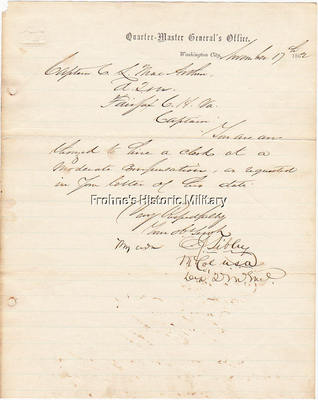 Quarter-Master General's Office,
Washington City, November 17th 1862
Captain C. L. Mac Arthur
A. Q. M.
Fairfax C. H. Va.
Captain:
You are au-
thorized to hire a clerk at a
moderate compensation, as requested
in your letter of this date.
Frohne's Historic Military
Very Respectfully
Your Obt Servt
By order
E. S. Sibley
Col U.S.A.